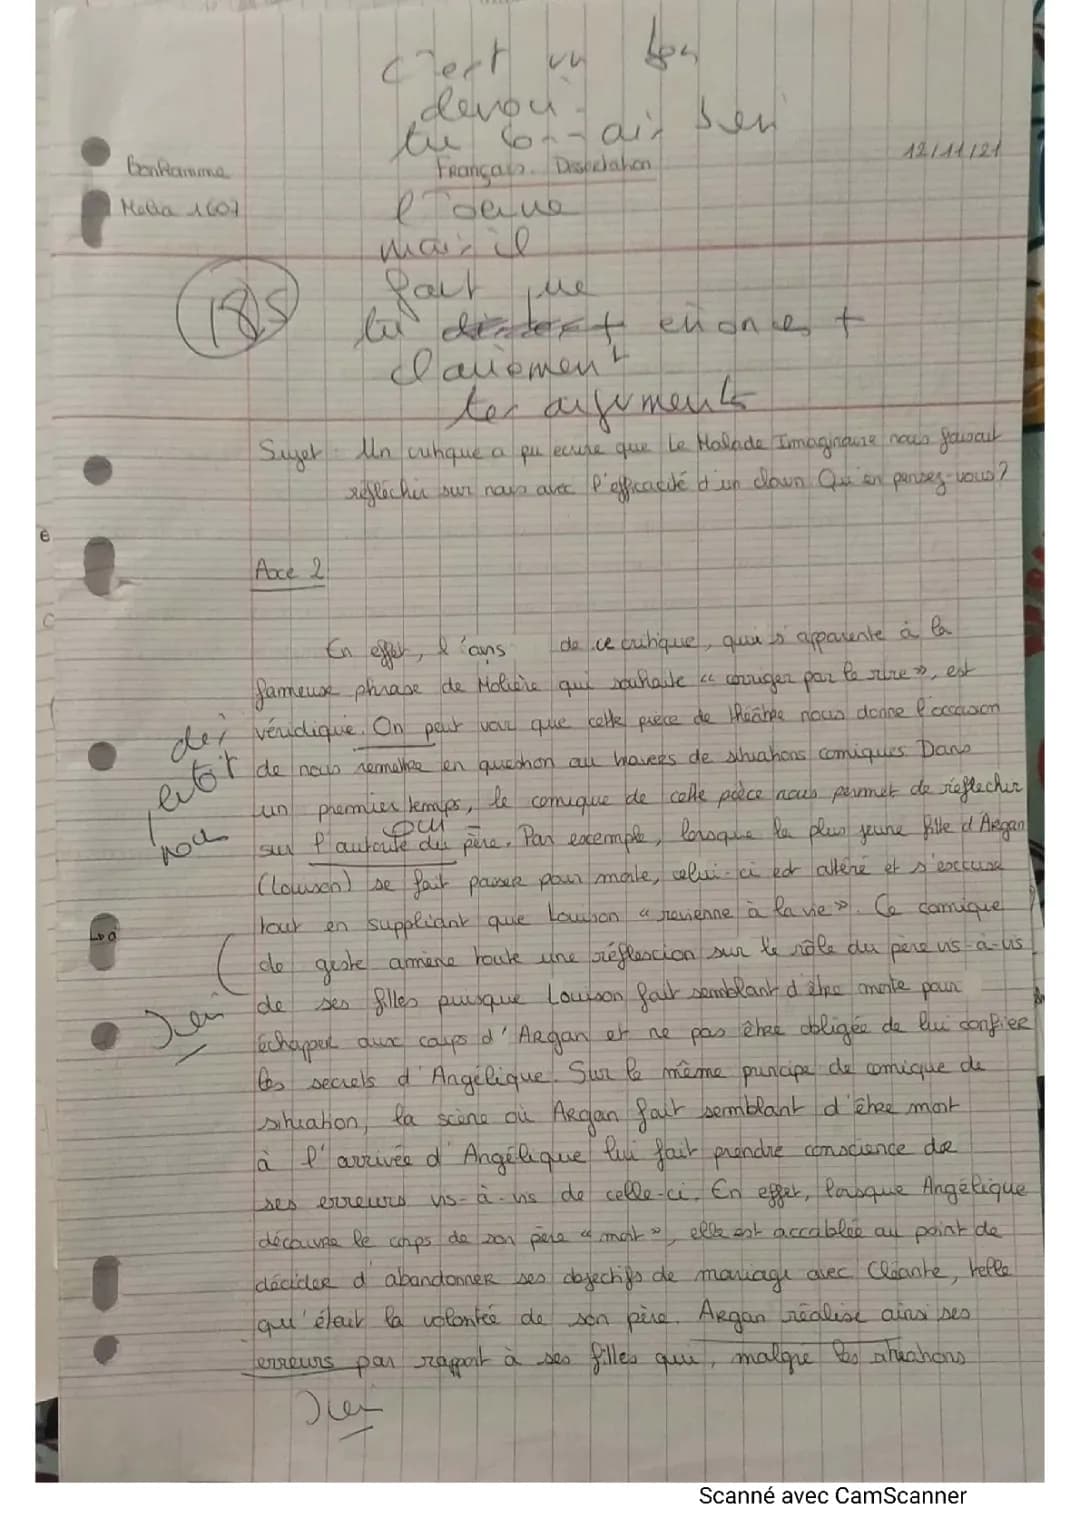 c'est un bon
devoir
tu connais bien
12/11/21
Bonhamme
Français. Dissertation
Melia 1607
l'oeuvre
mais il
faut que
18,5
tu énonces +
clairement
tes arguments
Sujet : Un critique a pu écrire que Le Malade Imaginaire nous faisait
réfléchir sur nous avec l'efficacité d'un clown. Qu'en pensez-vous ?
Axe 2
En effet, de ce critique, qui s'apparente à la
fameuse phrase de Molière qui souhaite « corriger par le rire », est
véridique. On peut voir que cette pièce de théâtre nous donne l'occasion
de nous remettre en question au travers de situations comiques. Dans
un premier temps, le comique de cette pièce nous permet de réflechir
oui
sur l'autorité du père. Par excemple, lorsque la plus jeune fille d'Argan
(Louison) se fait passer pour morte, celui-ci est altéré et s'exccuse
tout en suppliant que Louison « revienne à la vie ». Ce comique
de geste amène toute une réflexcion sur le rôle du père vis-à-vis
de ses filles puisque Louison fait semblant d'être morte pour
bien
échapper aux coups d'Argan et ne pas être obligée de lui confier
les secrets d'Angélique. Sur le même principe de comique de
situation, la scène où Argan fait semblant d'être mort
à l'arrivée d'Angélique lui fait prendre conscience de
ses erreurs vis-à-vis de celle-ci. En effet, lorsque Angélique
découvre le corps de son père « mort », elle est accablée au point de
décider d'abandonner ses objectifs de mariage avec Cléante, telle
qu'était la volontée de son père. Argan réalise ainsi ses
erreurs par rapport à ses filles qui, malgré les situations
bien
Scanné avec CamScanner